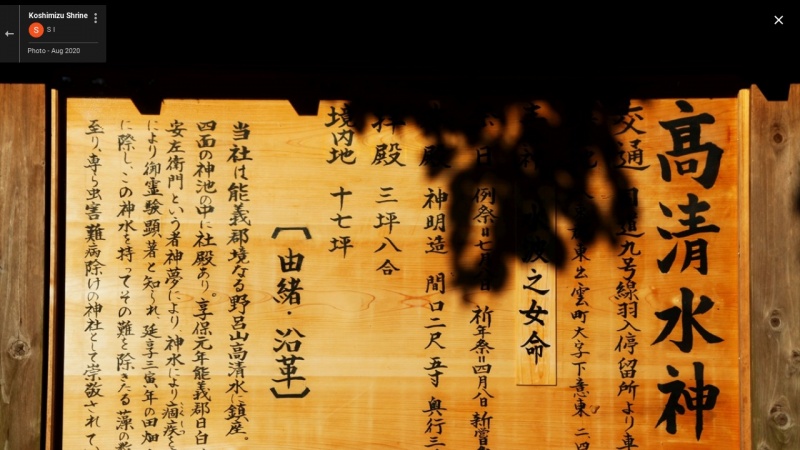 Koshimizu Shrine
S I
Photo - Aug 2020
高清水神
交通 国道九号線羽入停留所より車
東出雲町大字下意東
之女命
例祭=七月 日 祈年祭=四月八日 新嘗
殿 神明造 間口二尺五寸 奥行三
拝殿 三坪八合
境内地 十七坪
〔由緒・沿革〕
当社は能義郡境なる野呂山高清水に鎮座。
四面の神池の中に社殿あり。享保元年能義郡日白
安左衛門という者神夢により、神水により痼疾を
により御霊験顕著と知られ、延享三寅年の田畑
に際し、この神水を持ってその難を除きたる藻の
至り、専ら虫害難病除けの神社として崇敬されて、